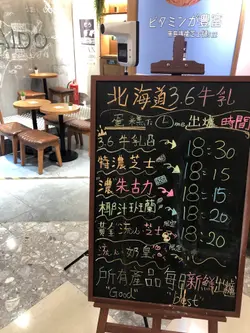 ビタミンが豊富
北海道3.6牛乳
出爐時間
3.6牛乳 18:30
特濃芝士 18:15
濃朱古力 18:15
椰汁班蘭 18:20
流心芝士 18:20
流心奶皇
所有產品每日新鮮出爐
"Good" "best"